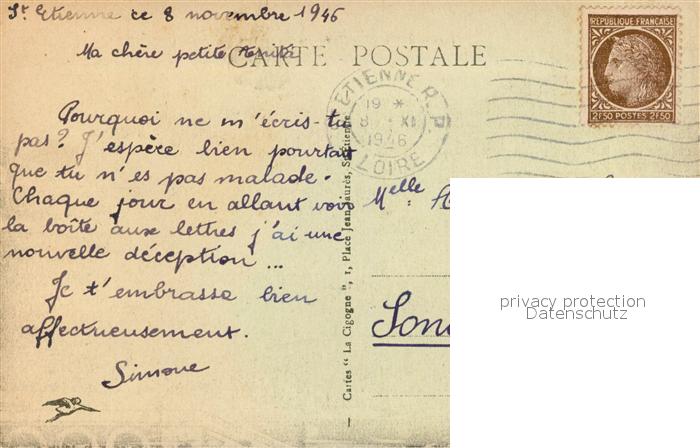 St Etienne ce 8 novembre 1946
Ma chère petite
CARTE POSTALE
Pourquoi ne m'écris-tu
pas? J'espère bien pourtant
que tu n'es pas malade.
Chaque jour en allant voir
la boîte aux lettres j'ai une
nouvelle déception ...
Je t'embrasse bien
affectueusement.
Simone
Cartes " La Cigogne ", 1, Place Jean-Jaurès, St-Etienne
ST ETIENNE R.P
19 *
8 - XI
1946
LOIRE
REPUBLIQUE FRANÇAISE
2F50 POSTES 2F50
Melle
privacy protection
Datenschutz